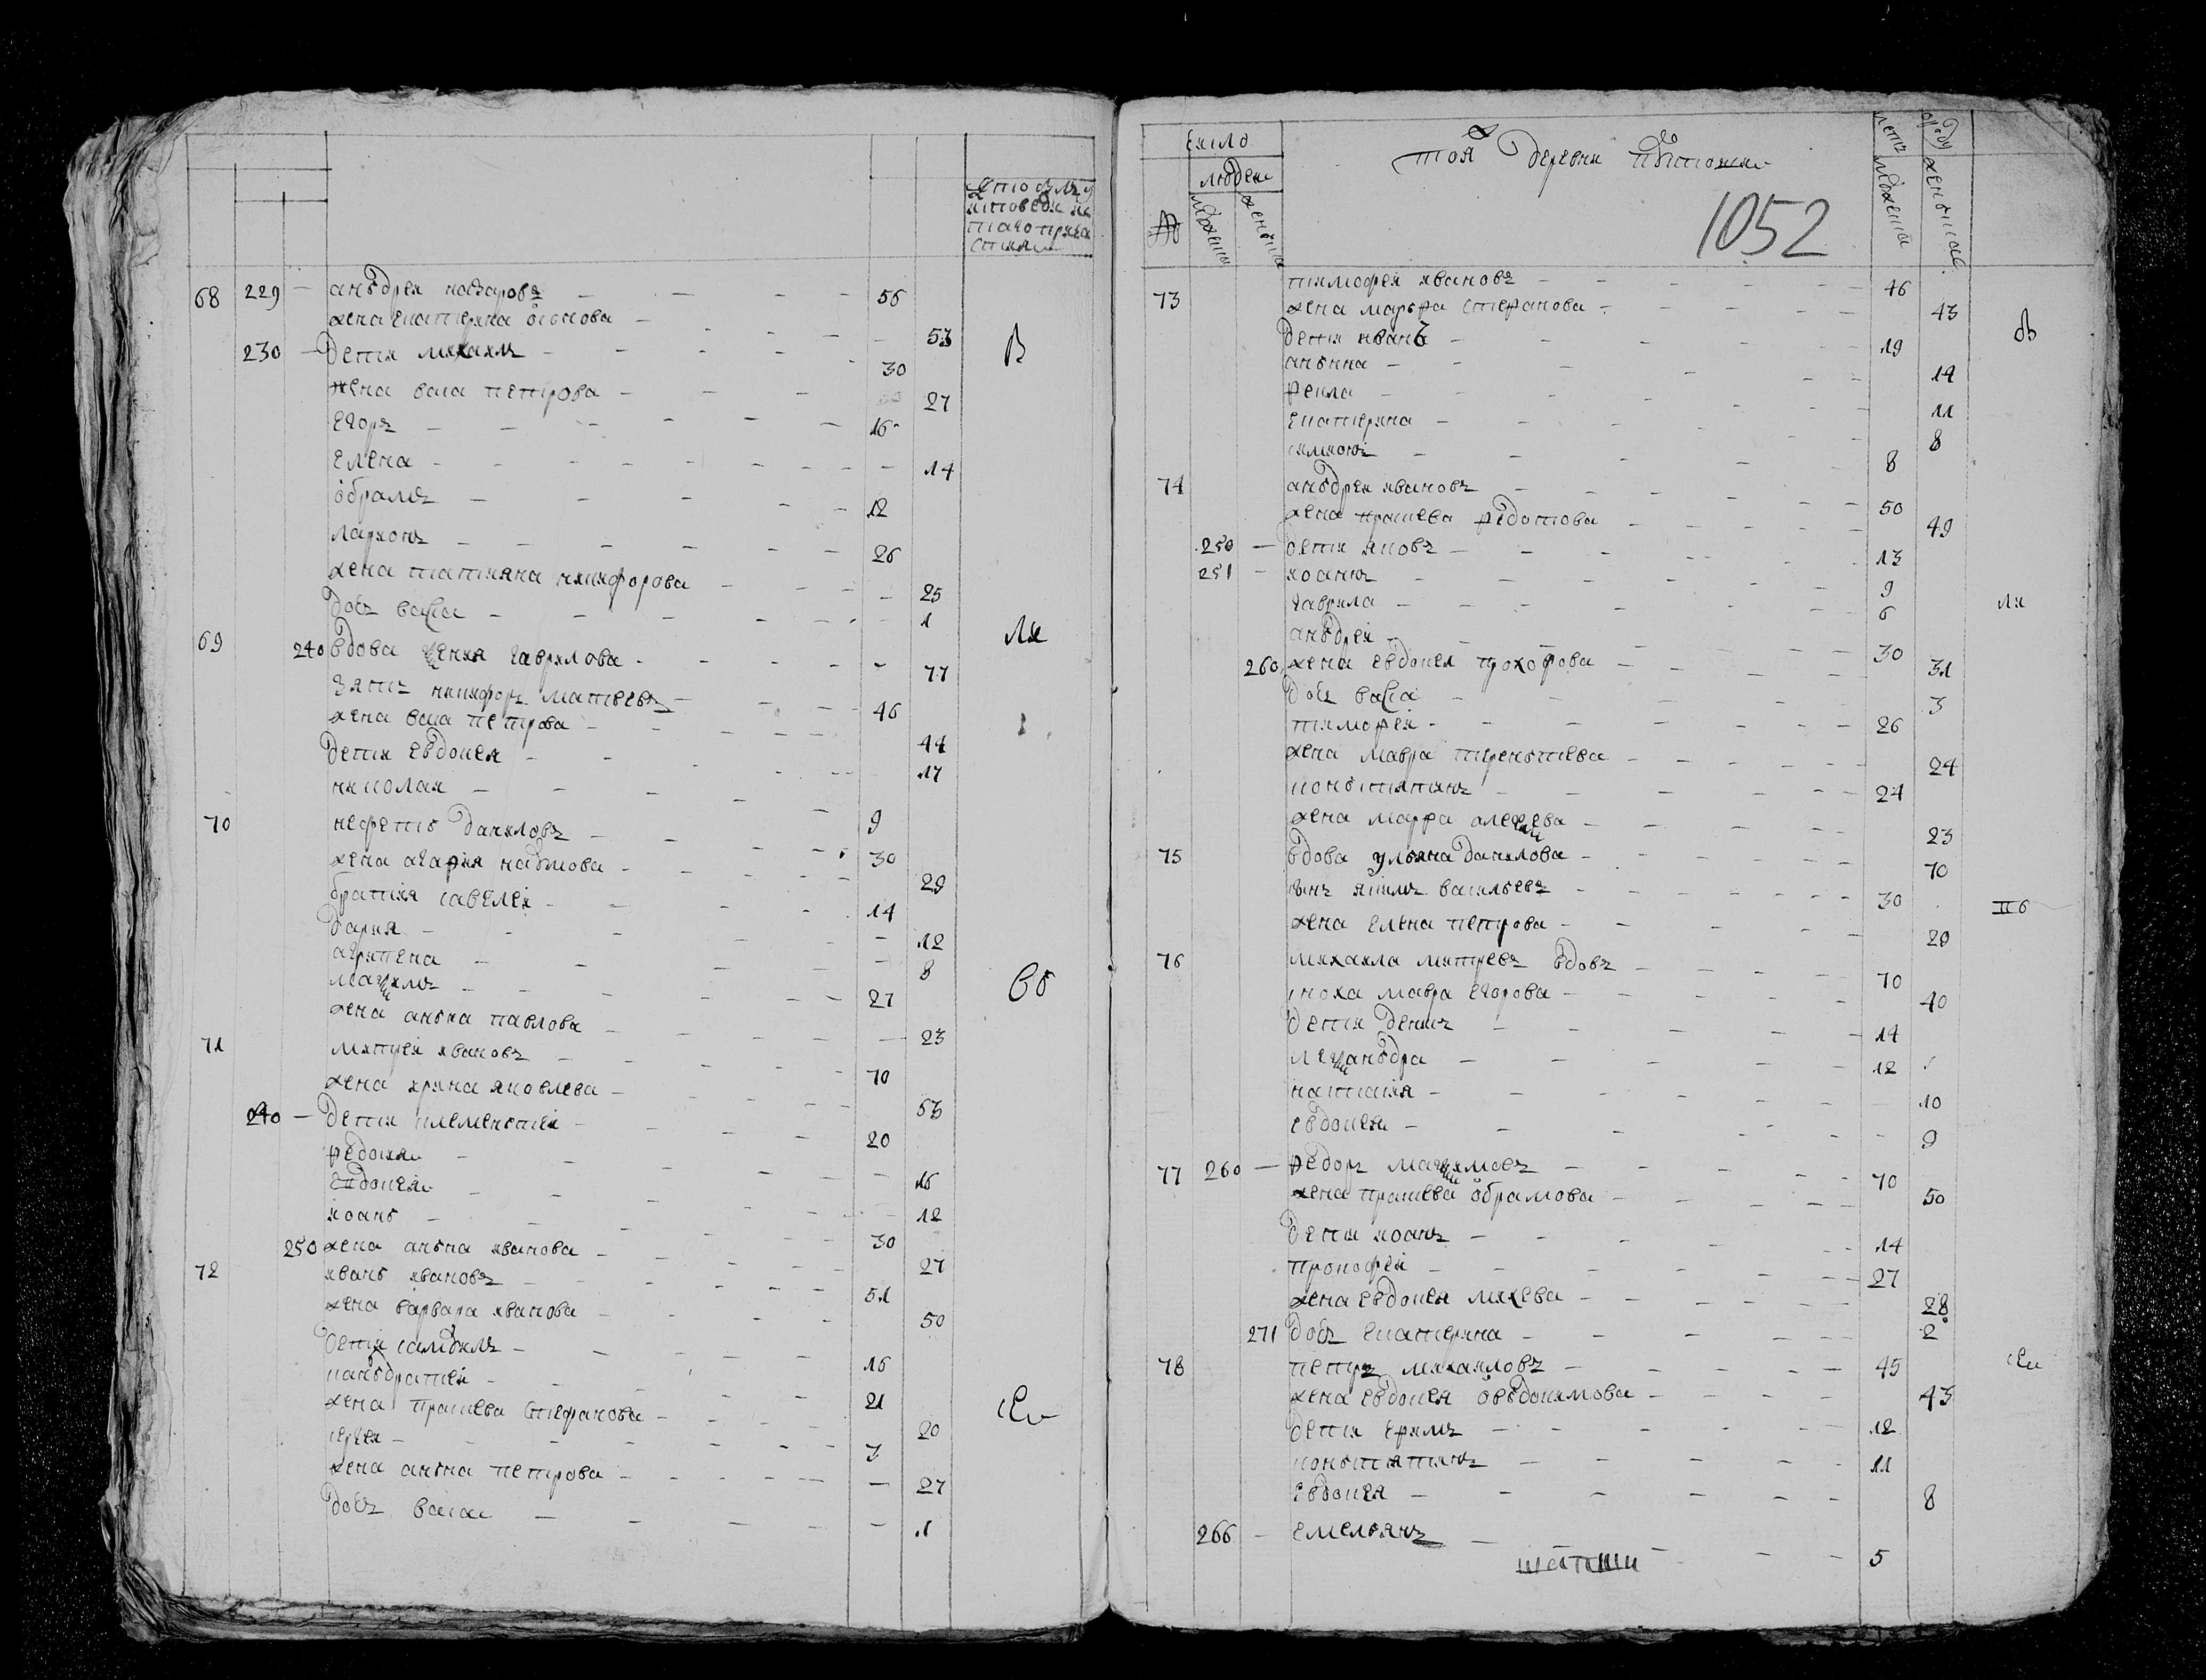 68 229 — анъдреи назаровъ — 56
жена екатерина — 53
230 — дети михаилъ — 30
В
жена васа петрова — 27
егоръ — 16
елена — 14
обрамъ — 12
ларионъ — 26
жена татияна никифорова — 25
дочь васса — 1
69 240 вдова ксения гаврилова — 77
ли
зять никифоръ матвеевъ — 46
жена васа петрова — 44
дети евдокея — 17
николаи — 9
70 нефетъ даниловъ — 30
жена агафия наумова — 29
братия савелеи — 14
дария — 12
агрипена — 8
маѯимъ — 27
Вб
жена анъна павлова — 23
71 митреи ивановъ — 70
жена ирина яковлева — 53
240 — дети клементеи — 20
федосия — 16
евдокея — 12
иоанъ — 30
250 жена анъна иванова — 27
72 иванъ ивановъ — 51
жена варвара иванова — 50
дети самоилъ — 16
канъдратеи — 21
жена праскева стефанова — 20
сергеи — 3
жена анъна петрова — 27
дочь васса — 1
число
людеи
мужеска
женъска
тоя деревни
летъ
мужеска
женъска
1052
73 тимофеи ивановъ — 46
жена марфа стефанова — 43
дети иванъ — 19
анънна — 14
фекла — 11
екатерина — 8
симионъ — 8
74 анъдреи ивановъ — 50
жена праскева федотова — 49
250 — дети яковъ — 13
251 — иоаннъ — 9
гаврила — 6
ли
анъдреи — 30
260 жена евдокея прохорова — 31
дочь васса — 3
тимофеи — 26
жена мавра терентиева — 24
конъстятинъ — 24
жена марфа алеѯеева — 23
75 вдова ульяна данилова — 70
сынъ якимъ васильевъ — 30
жена елена петрова — 29
76 михаила митревъ вдовъ — 70
сноха мавра егорова — 40
дети денисъ — 14
леѯанъдра — 12
наталия — 10
евдокея — 9
77 260 — федоръ маѯимовъ — 70
жена праскева обрамова — 50
дети иоанъ — 14
прокофеи — 27
жена евдокея михеева — 28
271 дочь екатерина — 2
78 петръ михаиловъ — 45
жена евдокея овъдокимова — 43
дети ефимъ — 12
конъстятинъ — 11
евдокея — 8
266 — емельянъ — 5